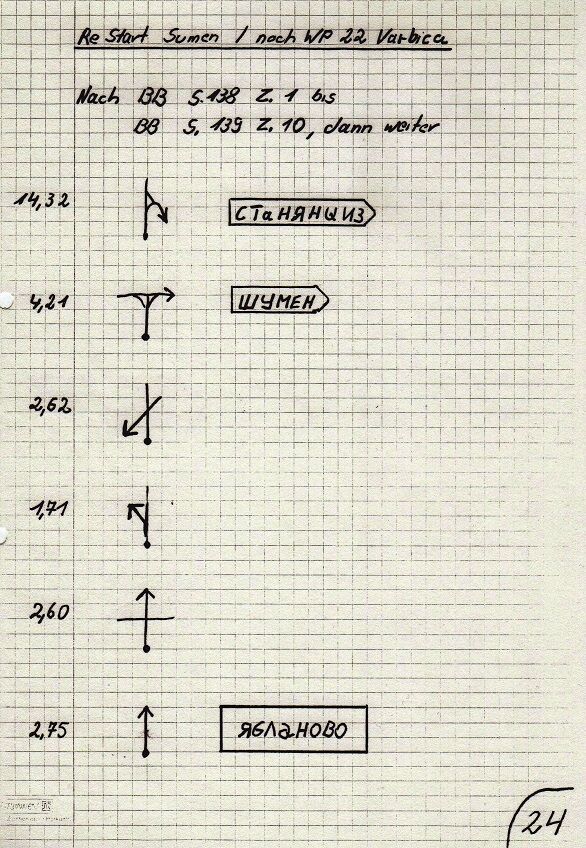 Re Start Sumen / nach WP 22 Varbica
Nach BB S. 138 Z. 1 bis
BB S. 139 Z. 10, dann weiter
14,32 СТаНЯНЦИЗ
4,21 ШУМЕН
2,62
1,71
2,60
2,75 ЯБЛаНОВО
24